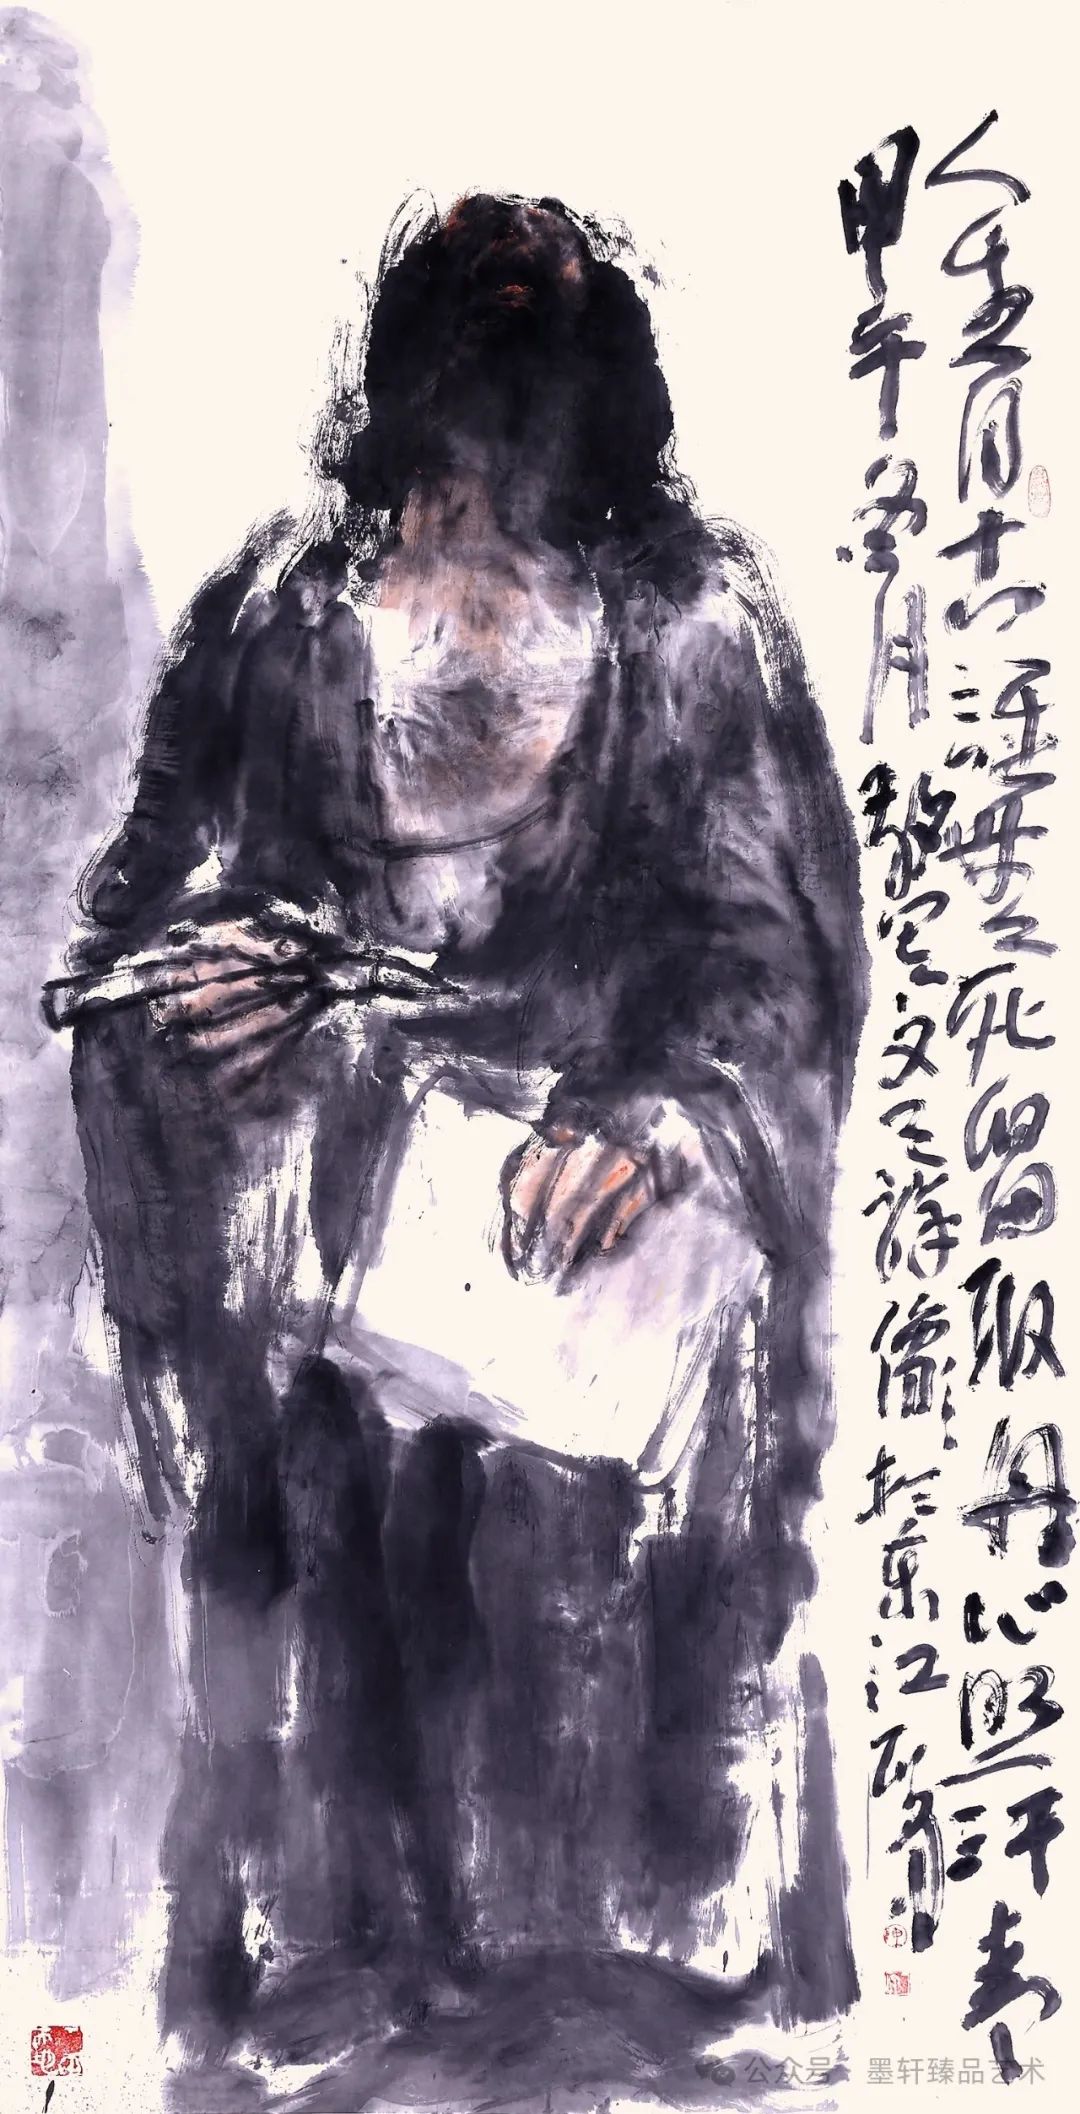 人生自古誰無死留取丹心照汗青
甲午冬月敬写文天祥像於東江
公众号 · 墨轩臻品艺术